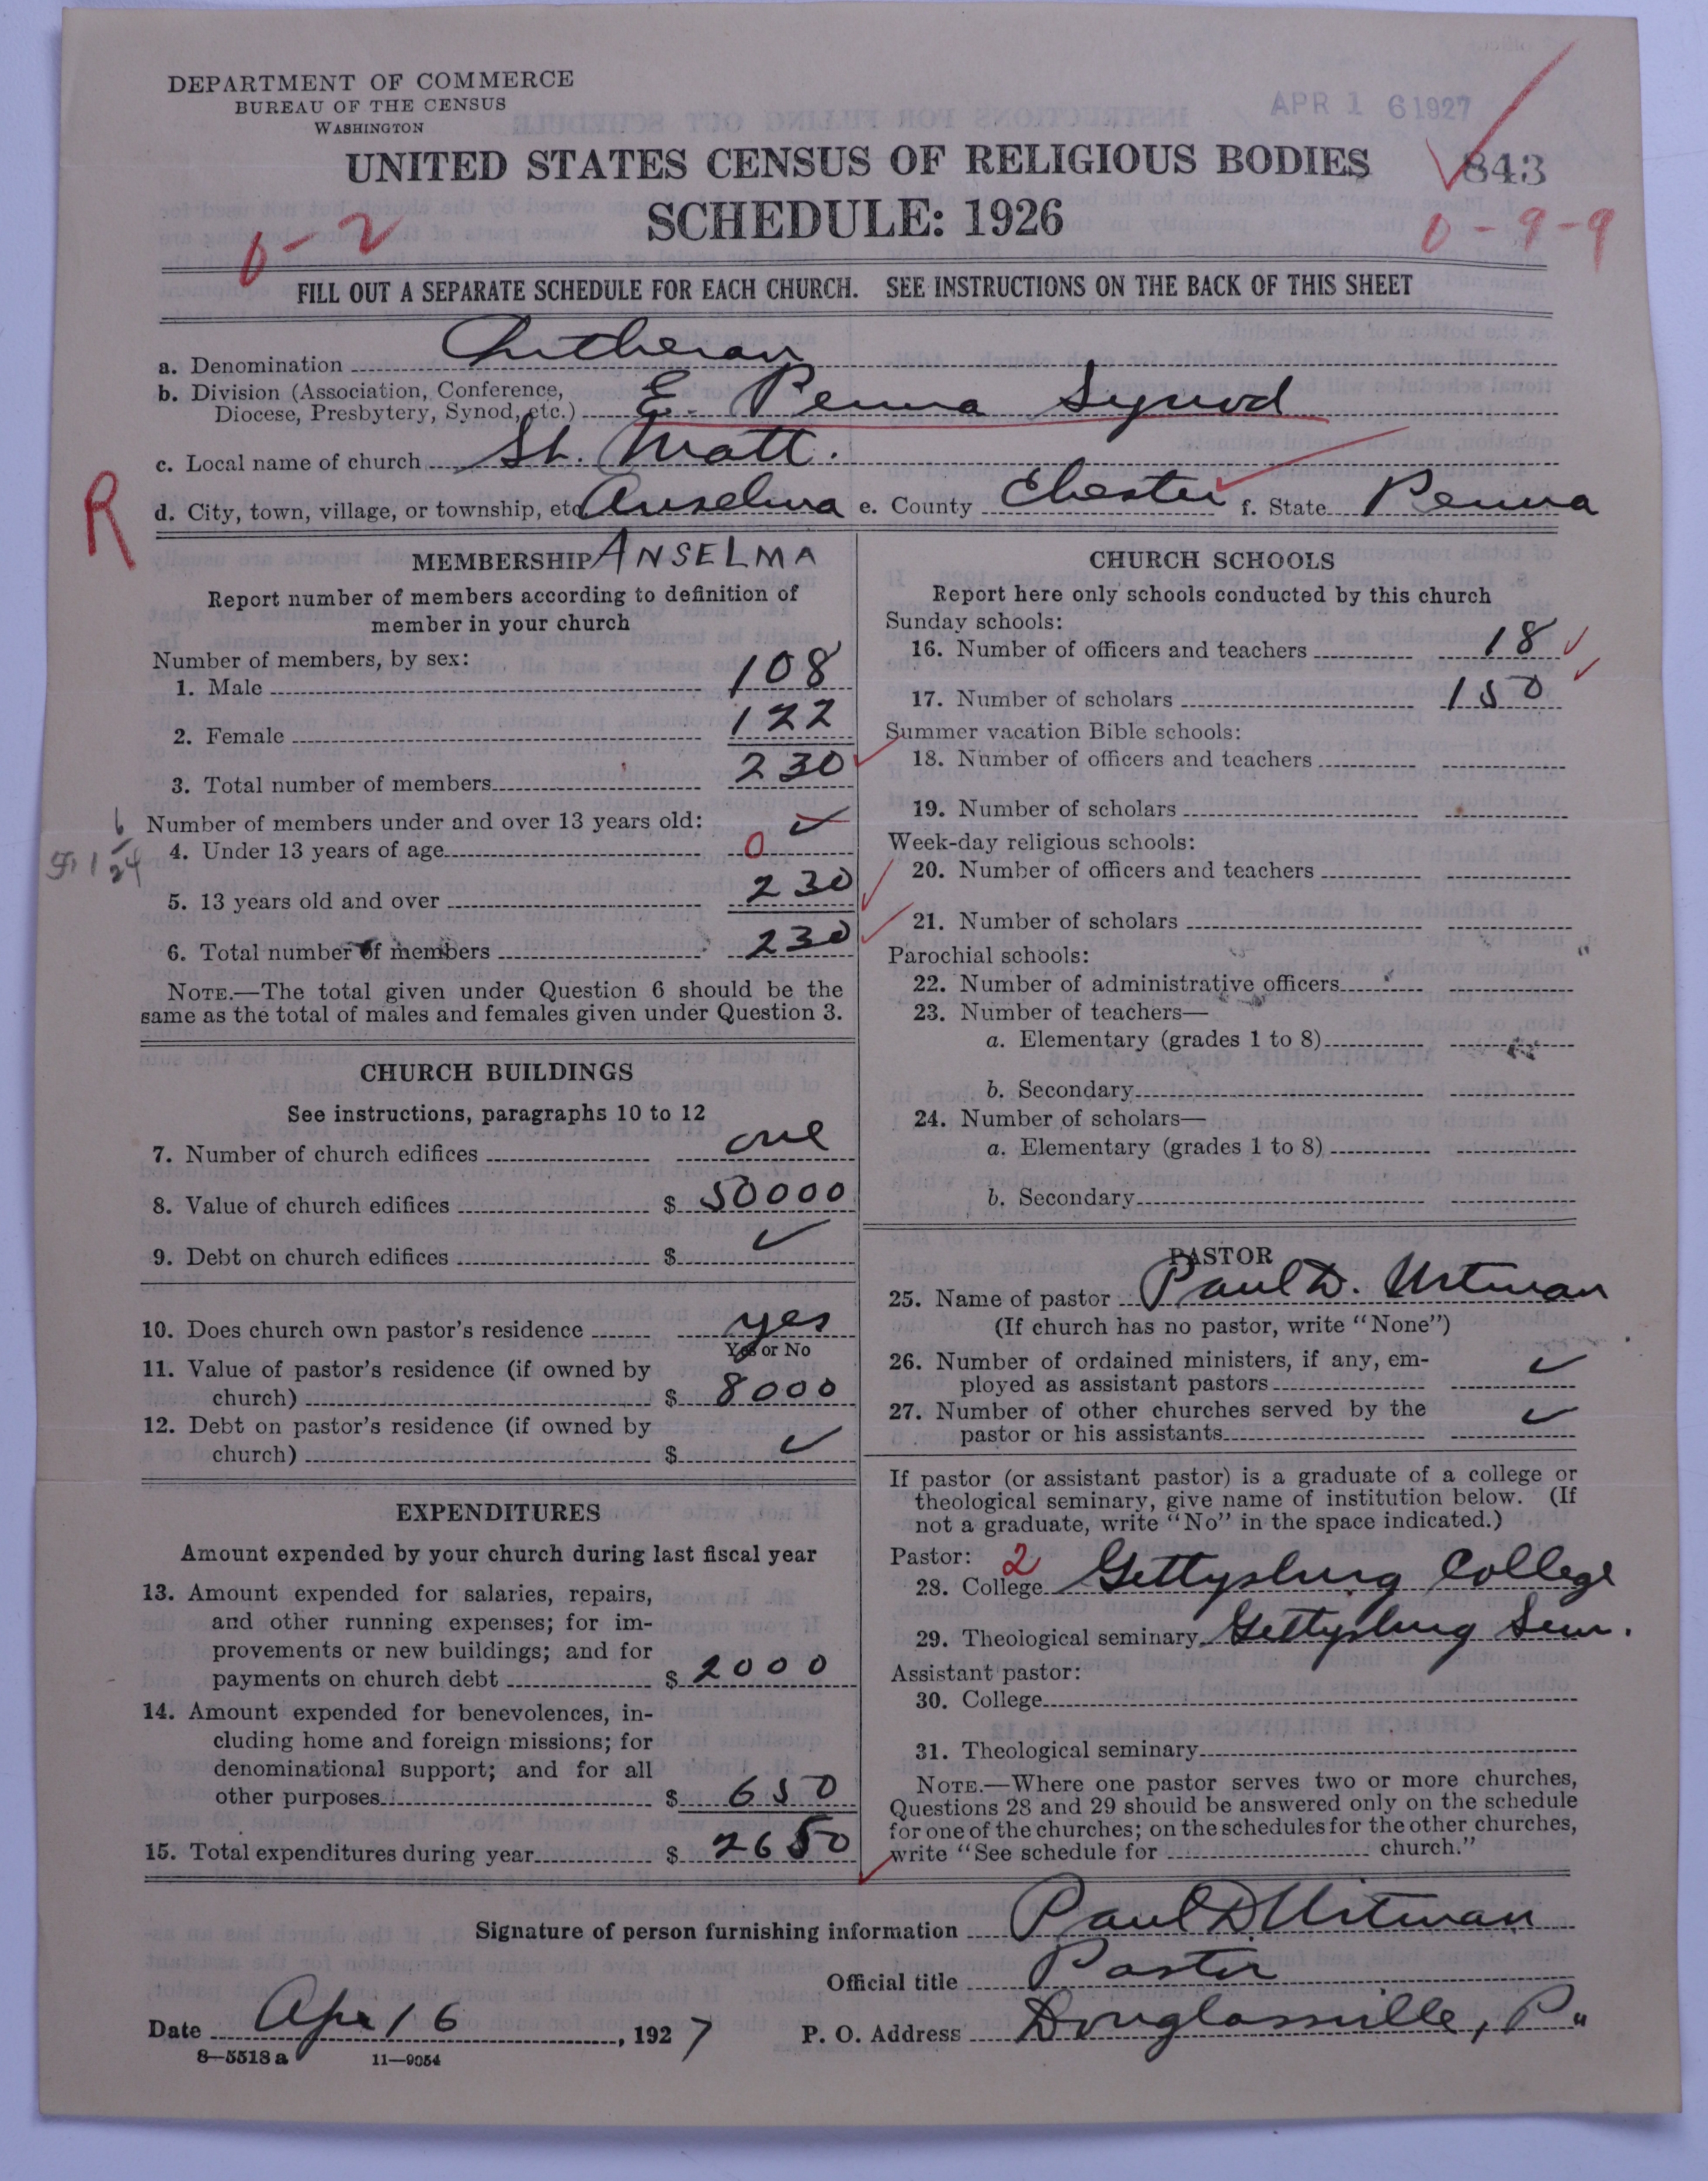 DEPARTMENT OF COMMERCE
BUREAU OF THE CENSUS
WASHINGTON
APR 16 1927
UNITED STATES CENSUS OF RELIGIOUS BODIES
843
SCHEDULE: 1926
0-2
0-9-9
FILL OUT A SEPARATE SCHEDULE FOR EACH CHURCH. SEE INSTRUCTIONS ON THE BACK OF THIS SHEET
a. Denomination Lutheran
b. Division (Association, Conference,
Diocese, Presbytery, Synod, etc.) E. Penna Synod
c. Local name of church St. Matt.
R
d. City, town, village, or township, etc Anselma e. County Chester f. State Penna
MEMBERSHIP ANSELMA
Report number of members according to definition of
member in your church
Number of members, by sex:
1. Male 108
2. Female 122
3. Total number of members 230
Number of members under and over 13 years old:
4. Under 13 years of age 0
5. 13 years old and over 230
6. Total number of members 230
NOTE.—The total given under Question 6 should be the
same as the total of males and females given under Question 3.
CHURCH BUILDINGS
See instructions, paragraphs 10 to 12
7. Number of church edifices one
8. Value of church edifices $ 50000
9. Debt on church edifices $ ✓
10. Does church own pastor's residence yes
Yes or No
11. Value of pastor's residence (if owned by
church) $ 8000
12. Debt on pastor's residence (if owned by
church) $ ✓
EXPENDITURES
Amount expended by your church during last fiscal year
13. Amount expended for salaries, repairs,
and other running expenses; for im-
provements or new buildings; and for
payments on church debt $ 2000
14. Amount expended for benevolences, in-
cluding home and foreign missions; for
denominational support; and for all
other purposes $ 650
15. Total expenditures during year $ 2650
CHURCH SCHOOLS
Report here only schools conducted by this church
Sunday schools:
16. Number of officers and teachers 18
17. Number of scholars 150
Summer vacation Bible schools:
18. Number of officers and teachers
19. Number of scholars
Week-day religious schools:
20. Number of officers and teachers
21. Number of scholars
Parochial schools:
22. Number of administrative officers
23. Number of teachers—
a. Elementary (grades 1 to 8)
b. Secondary
24. Number of scholars—
a. Elementary (grades 1 to 8)
b. Secondary
PASTOR
25. Name of pastor Paul D. Ustman
(If church has no pastor, write "None")
26. Number of ordained ministers, if any, em-
ployed as assistant pastors ✓
27. Number of other churches served by the
pastor or his assistants ✓
If pastor (or assistant pastor) is a graduate of a college or
theological seminary, give name of institution below. (If
not a graduate, write "No" in the space indicated.)
Pastor: 2
28. College Gettysburg College
29. Theological seminary Gettysburg Sem.
Assistant pastor:
30. College
31. Theological seminary
NOTE.—Where one pastor serves two or more churches,
Questions 28 and 29 should be answered only on the schedule
for one of the churches; on the schedules for the other churches,
write "See schedule for church."
Signature of person furnishing information Paul D Ustman
Official title Pastor
Date Apr 16, 1927 P. O. Address Douglassville, Pa
8-5518 a 11-9054